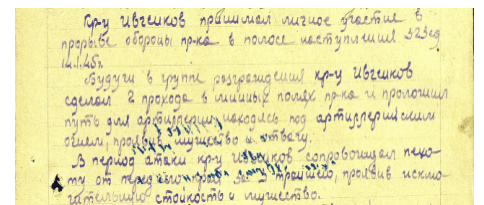 Кр-ц Ивженков принимал личное участие в
прорыве обороны пр-ка в полосе наступления 323сд
14.1.45г.
Будучи в группе разграждения кр-ц Ивженков
сделал 2 прохода в минных полях пр-ка и проложил
путь для артиллерии находясь под артиллерийским
огнем, проявив мужество и отвагу.
В период атаки кр-ц Ивженков сопровождал пехо-
ту от переднего края до траншей, проявив исклю-
чительную стойкость и мужество.